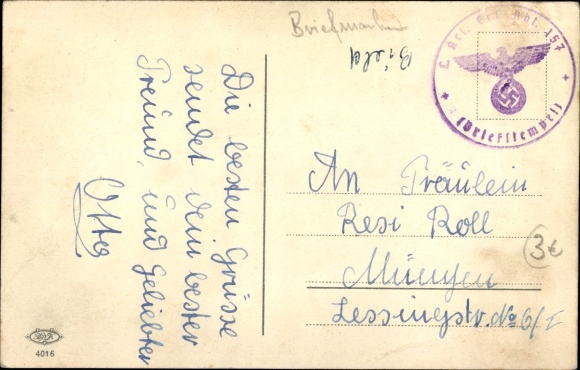 Briefmarken
l. Art. Ers. Abt. 157
(Briefstempel)
Die besten Grüsse
sendet dein bester
Freund, und Geliebter
Otto
An Fräulein
Resi Roll
Müngen
Lessingstr. No 6/I
3€
4016